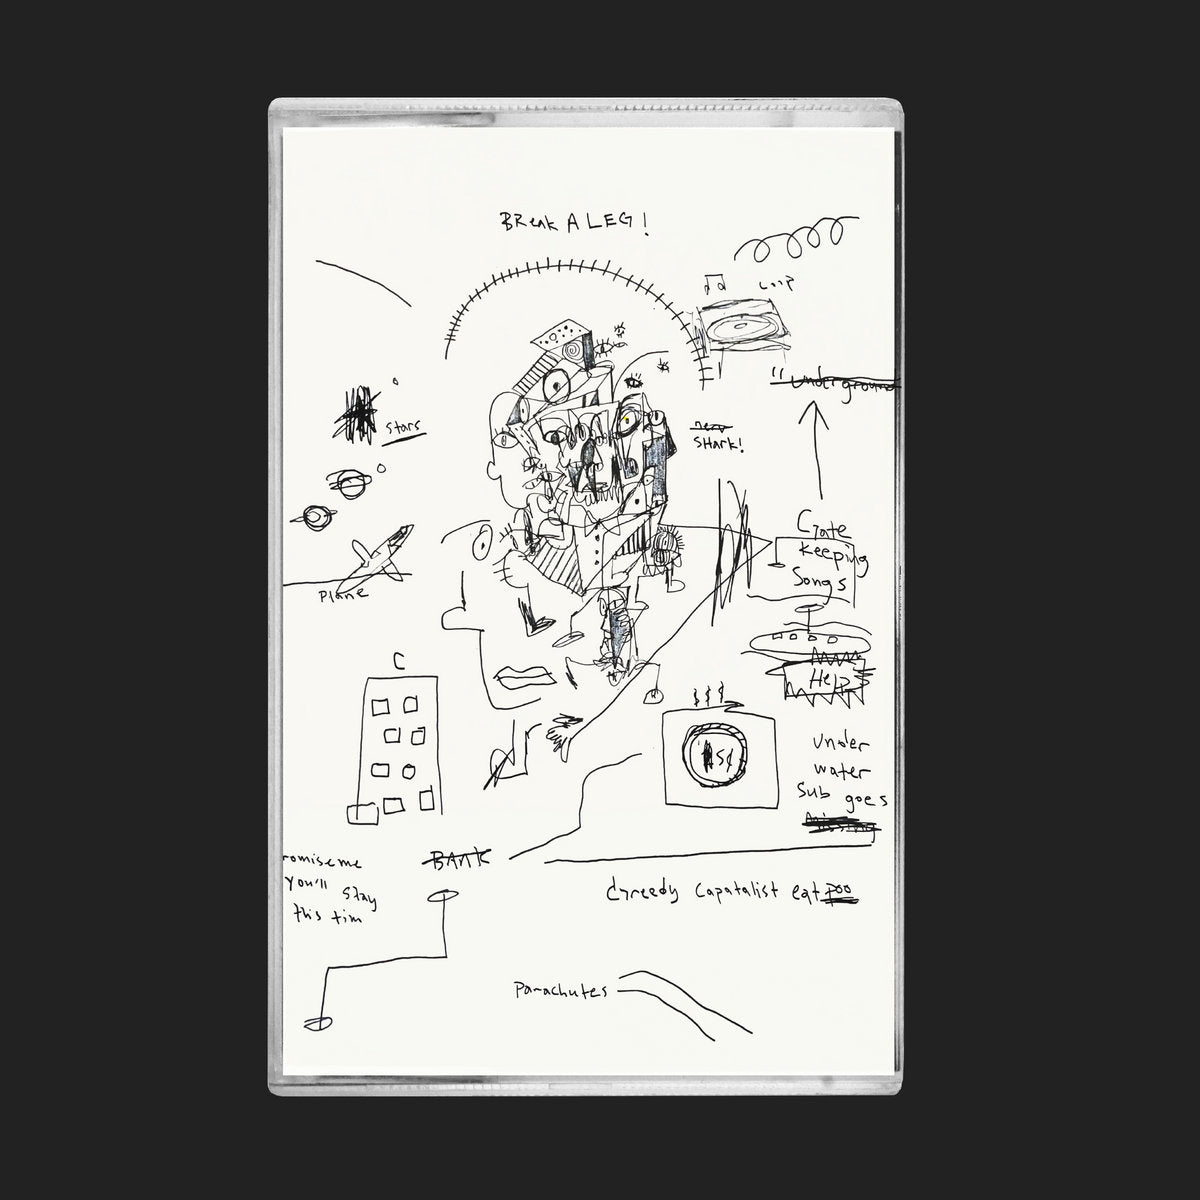 BReak A LEG!
Loop
"underground
Stars
new
SHark!
Gate
Keeping
Songs
Plane
C
Help
$$$
under
water
Sub goes
missing
BAnk
romise me
you'll stay
this tim
Greedy Capatalist eat poo
Parachutes